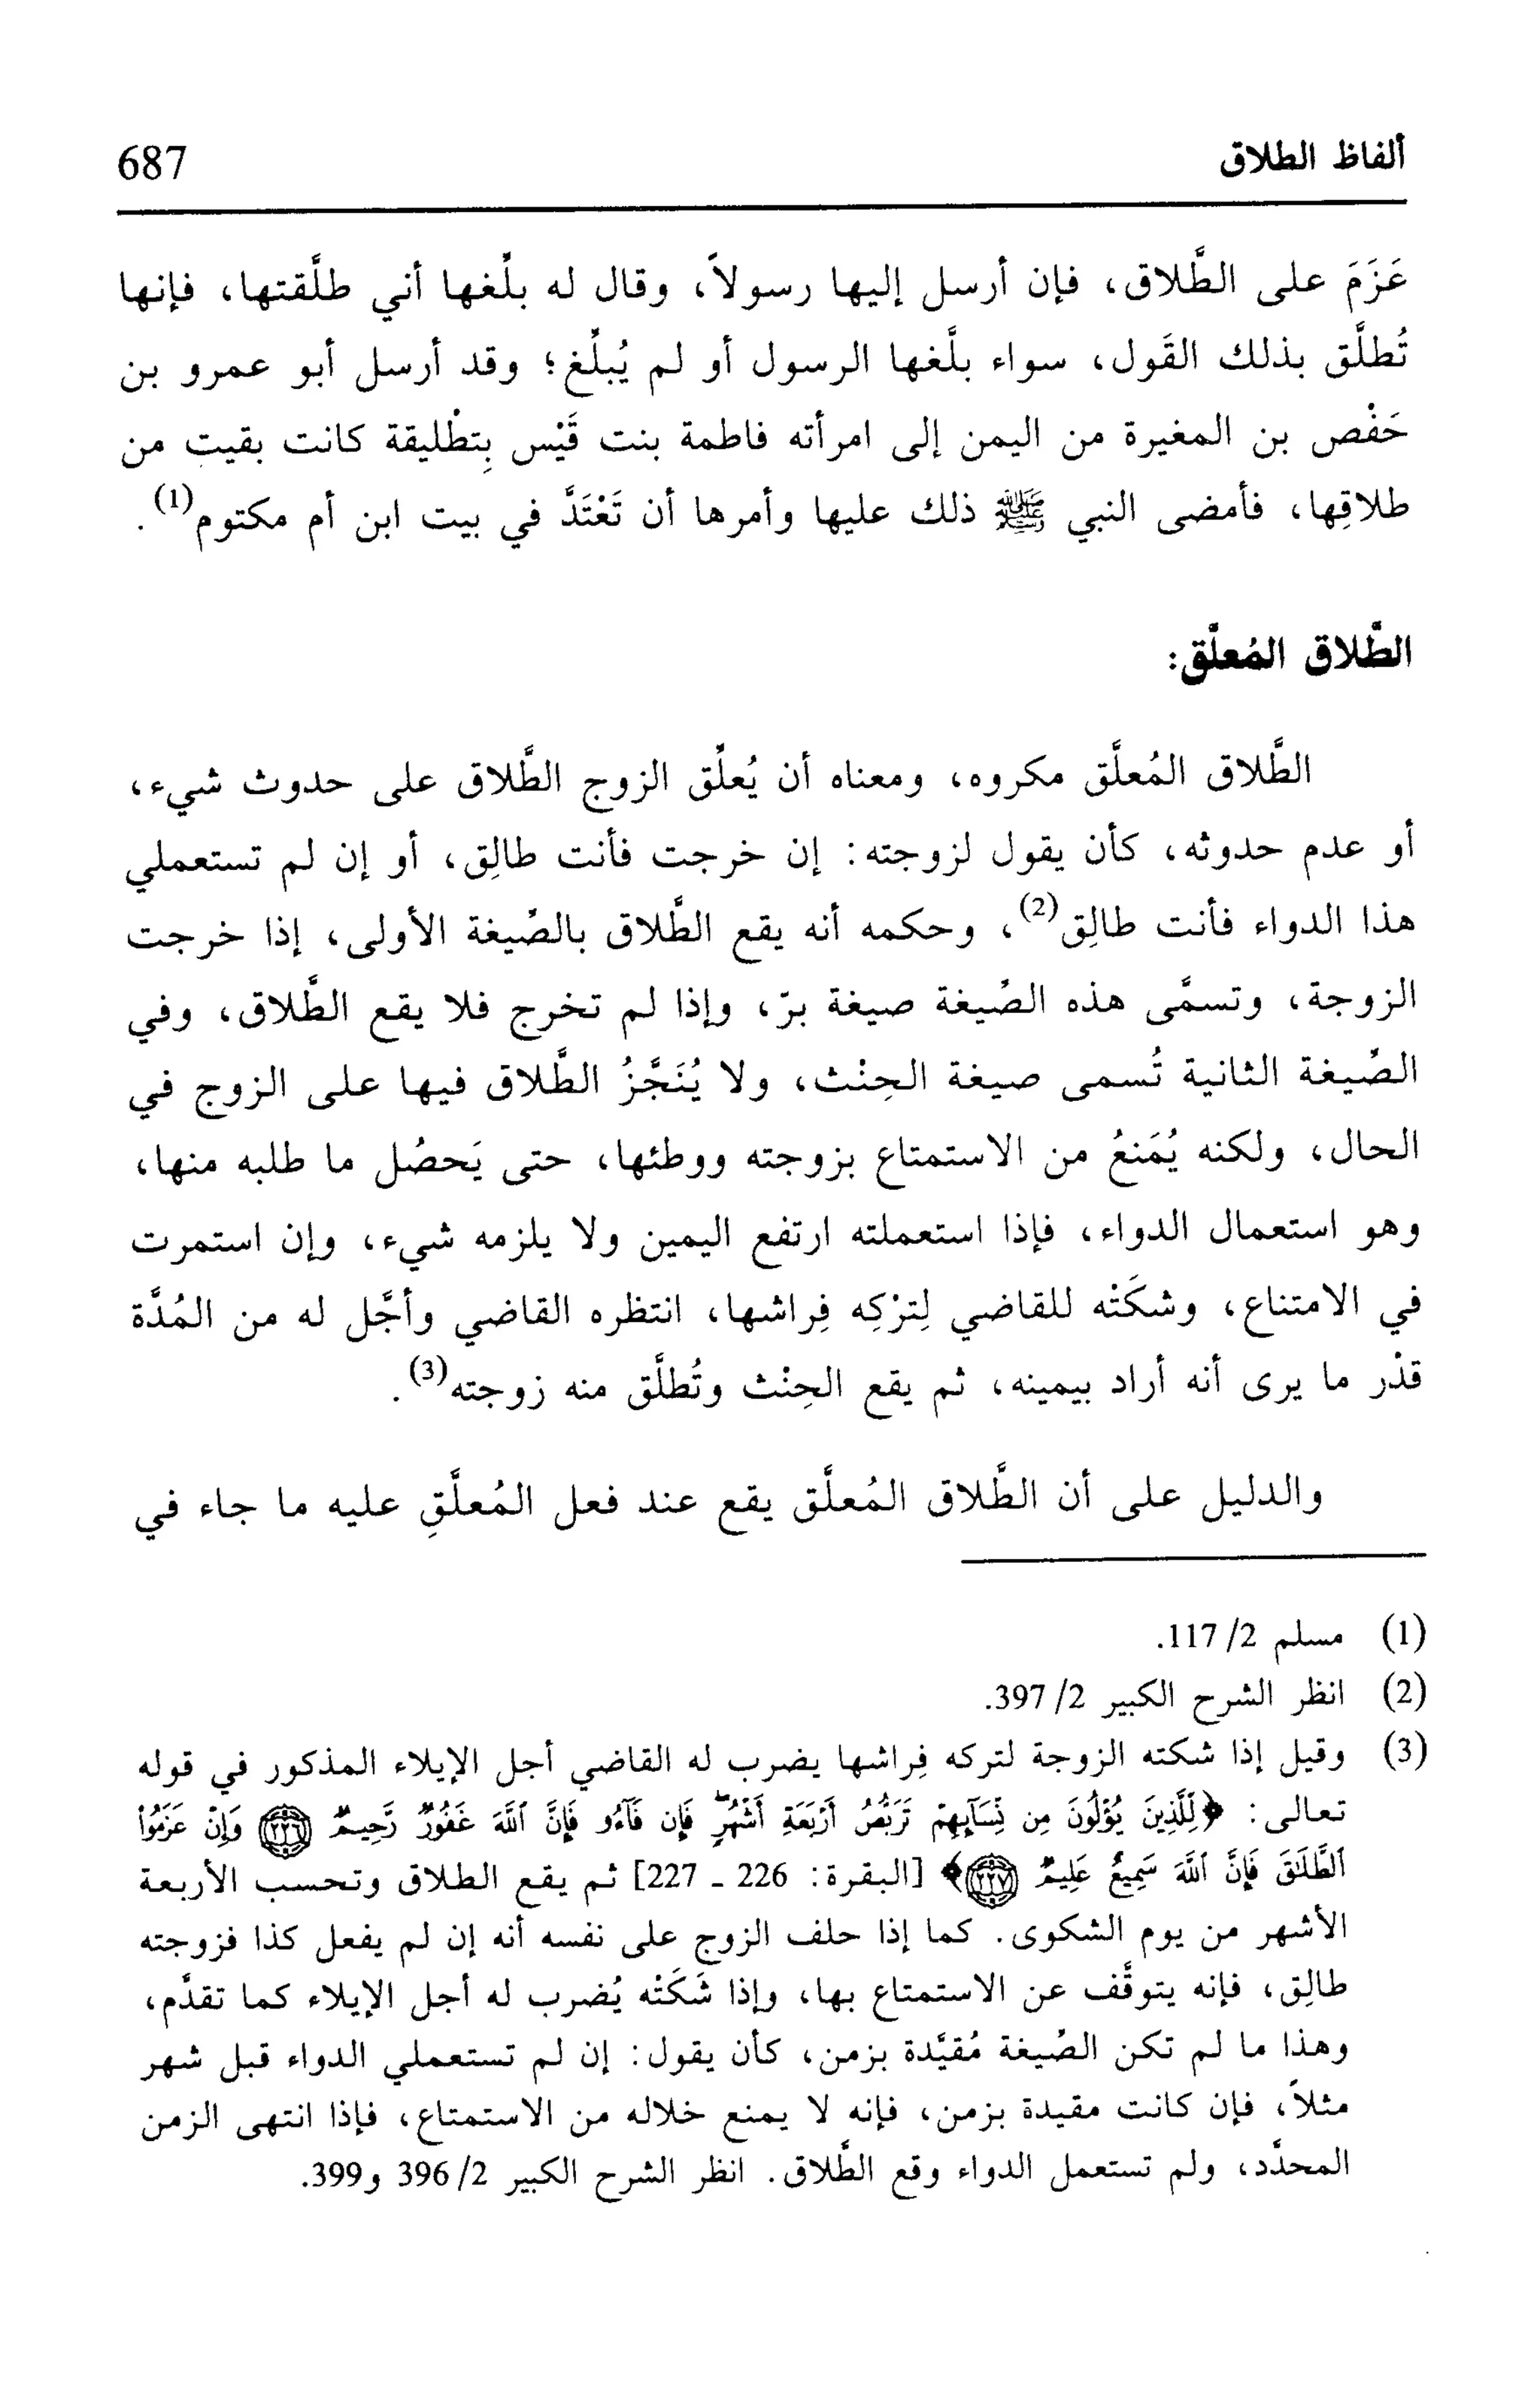 ألفاظ الطلاق 687
عَزَمَ على الطَّلاق، فإن أرسل إليها رسولاً، وقال له بلِّغها أني طلَّقتها، فإنها
تُطلَّق بذلك القَول، سواء بلَّغها الرسول أو لم يُبلِّغ؛ وقد أرسل أبو عمرو بن
حَفْص بن المغيرة من اليمن إلى امرأته فاطمة بنت قَيْس بِتطْليقة كانت بقيت من
طلاقِها، فأمضى النبي ﷺ ذلك عليها وأمرها أن تَعْتَدَّ في بيت ابن أم مكتوم(1).
الطَّلاق المُعلَّق:
الطَّلاق المُعلَّق مكروه، ومعناه أن يُعلِّق الزوج الطَّلاق على حدوث شيء،
أو عدم حدوثه، كأن يقول لزوجته: إن خرجت فأنت طالِق، أو إن لم تستعملي
هذا الدواء فأنت طالِق(2)، وحكمه أنه يقع الطَّلاق بالصِّيغة الأولى، إذا خرجت
الزوجة، وتسمَّى هذه الصِّيغة صيغة برّ، وإذا لم تخرج فلا يقع الطَّلاق، وفي
الصِّيغة الثانية تُسمى صيغة الحِنْث، ولا يُنَجَّزُ الطَّلاق فيها على الزوج في
الحال، ولكنه يُمَنعُ من الاستمتاع بزوجته ووطئها، حتى يَحصُل ما طلبه منها،
وهو استعمال الدواء، فإذا استعملته ارتفع اليمين ولا يلزمه شيء، وإن استمرت
في الامتناع، وشكَتْه للقاضي لِتَرْكِه فِراشها، انتظره القاضي وأجَّل له من المُدَّة
قدْر ما يرى أنه أراد بيمينه، ثم يقع الحِنْث وتُطلَّق منه زوجته(3).
والدليل على أن الطَّلاق المُعلَّق يقع عند فعل المُعلَّقِ عليه ما جاء في
(1) مسلم 2/ 117.
(2) انظر الشرح الكبير 2/ 397.
(3) وقيل إذا شكته الزوجة لتركه فِراشها يضرب له القاضي أجل الإيلاء المذكور في قوله
تعالى: ﴿لِلَّذِينَ يُؤْلُونَ مِن نِّسَآئِهِمْ تَرَبُّصُ أَرْبَعَةِ أَشْهُرٍ فَإِن فَآءُو فَإِنَّ ٱللَّهَ غَفُورٌ رَّحِيمٌ ٢٢٦ وَإِنْ عَزَمُوا۟
ٱلطَّلَٰقَ فَإِنَّ ٱللَّهَ سَمِيعٌ عَلِيمٌ ٢٢٧﴾ [البقرة: 226 - 227] ثم يقع الطلاق وتحسب الأربعة
الأشهر من يوم الشكوى. كما إذا حلف الزوج على نفسه أنه إن لم يفعل كذا فزوجته
طالِق، فإنه يتوقَّف عن الاستمتاع بها، وإذا شَكَتْه يُضرب له أجل الإيلاء كما تقدَّم،
وهذا ما لم تكن الصِّيغة مُقيَّدة بزمن، كأن يقول: إن لم تستعملي الدواء قبل شهر
مثلاً، فإن كانت مقيدة بزمن، فإنه لا يمنع خلاله من الاستمتاع، فإذا انتهى الزمن
المحدَّد، ولم تستعمل الدواء وقع الطَّلاق. انظر الشرح الكبير 2/ 396 و399.